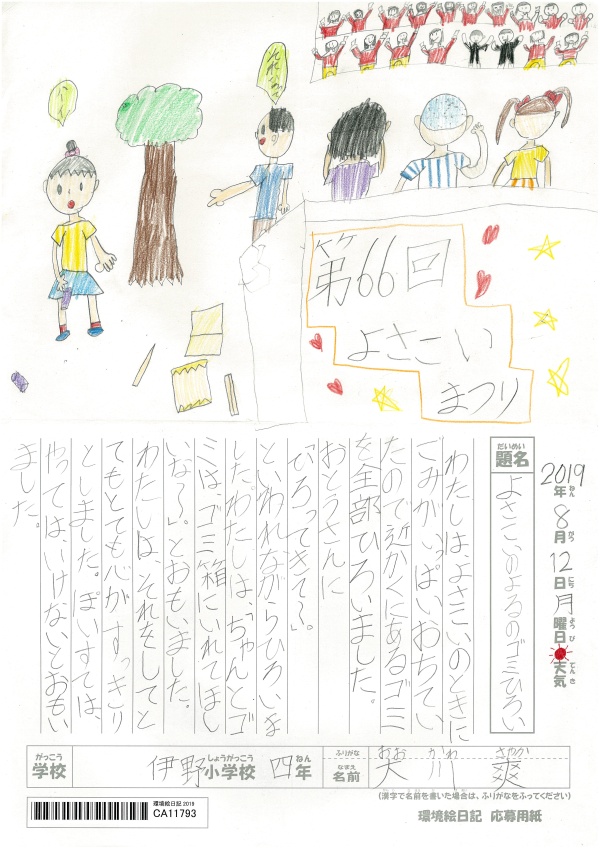 それひろって
第66回
よさこい
まつり
2019年ねん8月がつ12日にち月曜日ようび天気てんき
だいめい
題名
よさこいのよるのゴミひろい
わたしは、よさこいのときに
ごみがいっぱいおちてい
たので近かくにあるゴミ
を全部ひろいました。
おとうさんに
「ひろってきて〜」
といわれながらひろいま
した。わたしは、「ちゃんとゴ
ミは、ゴミ箱にいれてほし
いな〜」。とおもいました。
わたしは、それをしてと
てもとても心がすっきり
としました。ぽいすては、
やっては、いけないとおもい
ました。
がっこう
学校
伊野小学校しょうがっこう 四年ねん
ふりがな
おお かわ さやか
なまえ
名前
大川 爽
(漢字で名前を書いた場合は、ふりがなをふってください)
環境絵日記 2019
CA11793
環境絵日記 応募用紙